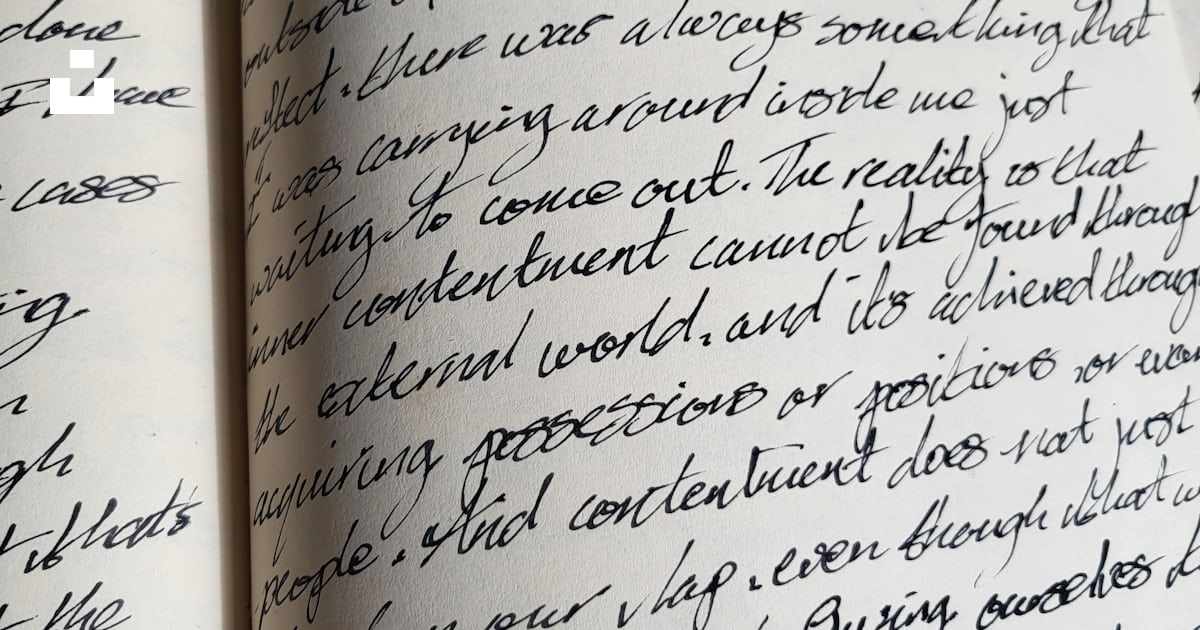 done
I have
cases
the
outside
reflect, there was always something that
I was carrying around inside me just
waiting to come out. The reality is that
inner contentment cannot be found through
the external world, and it's achieved through
acquiring possessions or positions, or even
people. And contentment does not just
our lap, even though that
ourselves